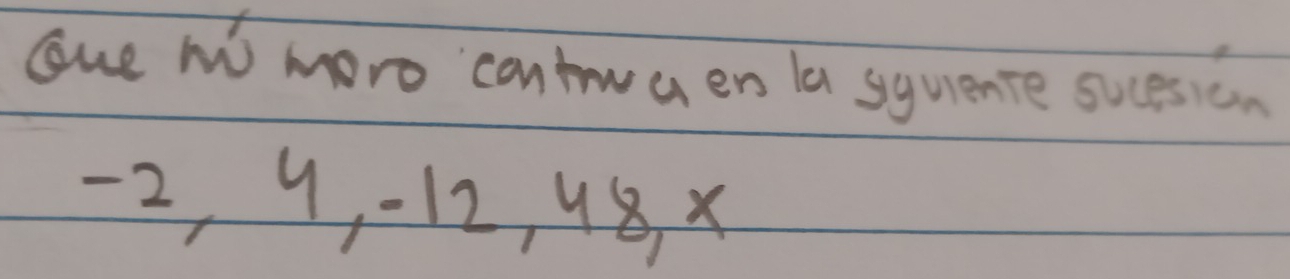 Que número continua en la siguiente sucesión
-2, 4, -12, 48, x